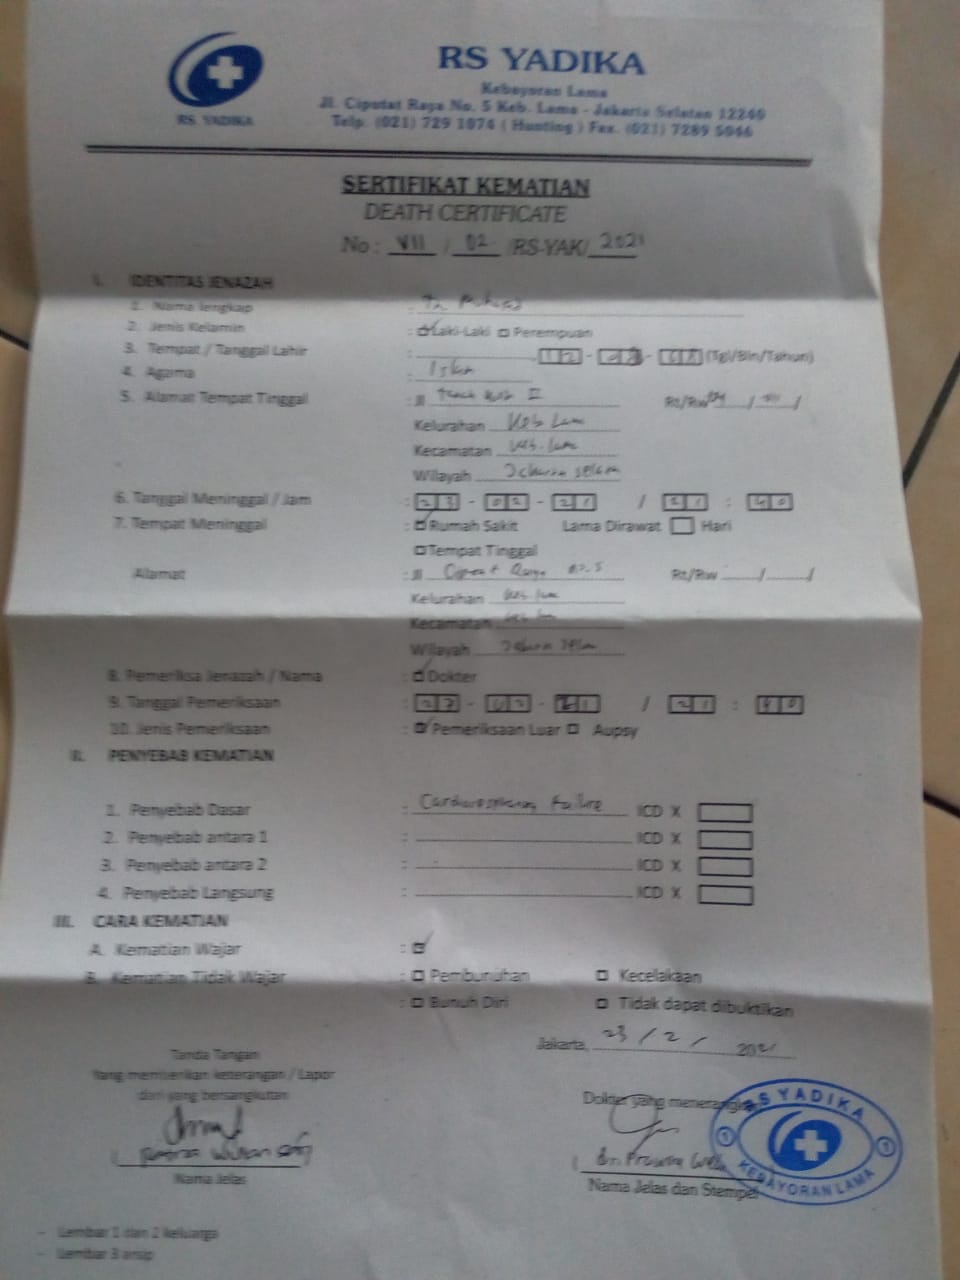 RS YADIKA
Kebayoran Lama
Jl. Ciputat Raya No. 5 Keb. Lama - Jakarta Selatan 12240
Telp. (021) 729 1074 ( Hunting ) Fax. (021) 7289 5046
RS. YADIKA
SERTIFIKAT KEMATIAN
DEATH CERTIFICATE
No : VII / 02 /RS-YAK/ 2021
I. IDENTITAS JENAZAH
1. Nama lengkap : Tn
2. Jenis Kelamin : Laki-Laki Perempuan
3. Tempat / Tanggal Lahir : 12 - - (Tgl/Bln/Tahun)
4. Agama : Islam
5. Alamat Tempat Tinggal : Jl II Rt/Rw / /
Kelurahan Keb Lama
Kecamatan Keb. Lama
Wilayah Jakarta Selatan
6. Tanggal Meninggal / Jam : 23 - 02 - 21 / 21 : 40
7. Tempat Meninggal : Rumah Sakit Lama Dirawat Hari
Tempat Tinggal
Alamat : Jl Ciputat Raya no. 5 Rt/Rw / /
Kelurahan Keb. Lama
Kecamatan Keb Lama
Wilayah Jakarta Selatan
8. Pemeriksa Jenazah / Nama : Dokter
9. Tanggal Pemeriksaan : 23 - 02 - 21 / 21 : 40
10. Jenis Pemeriksaan : Pemeriksaan Luar Aupsy
II. PENYEBAB KEMATIAN
1. Penyebab Dasar : Cardiorespiratory Failure ICD X
2. Penyebab antara 1 : ICD X
3. Penyebab antara 2 : ICD X
4. Penyebab Langsung : ICD X
III. CARA KEMATIAN
A. Kematian Wajar :
B. Kematian Tidak Wajar : Pembunuhan Kecelakaan
: Bunuh Diri Tidak dapat dibuktikan
Jakarta, 23 / 2 / 2021
Tanda Tangan
Yang memberikan keterangan / Lapor
dari yang bersangkutan
Dokter yang menerangkan
( Wulan
Nama Jelas
( dr.
Nama Jelas dan Stempel
RS YADIKA
KEBAYORAN LAMA
- Lembar 1 dan 2 keluarga
- Lembar 3 arsip